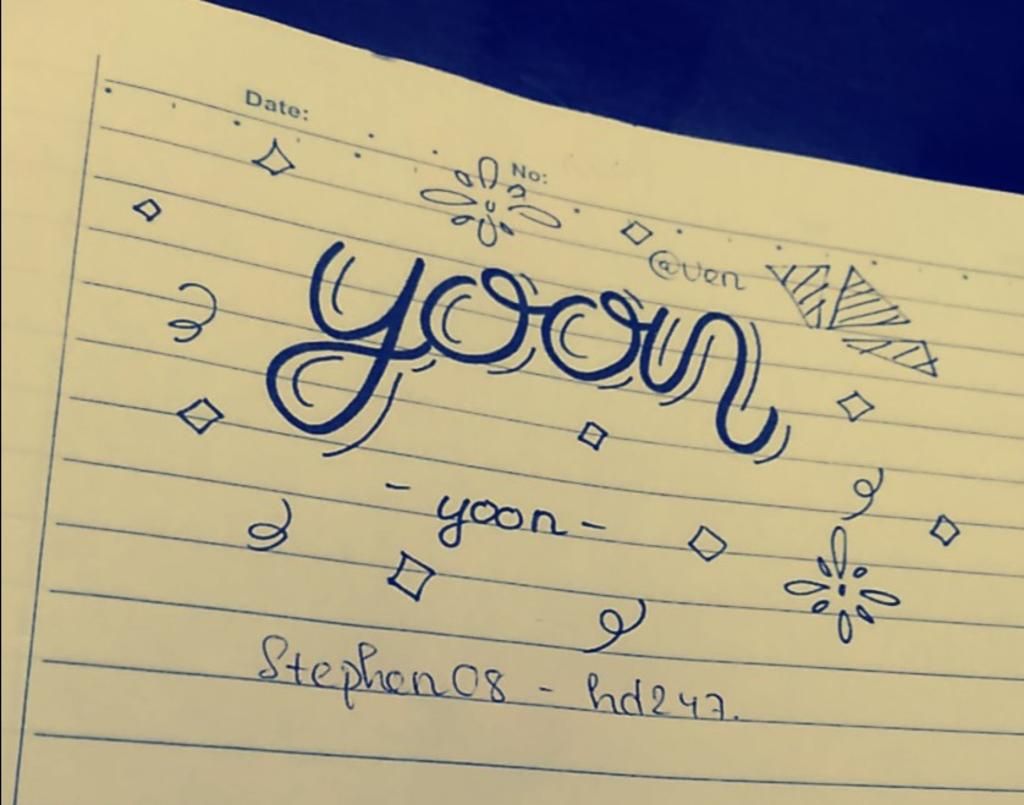 Date:
No:
@ven
yoon
- yoon -
Stephen08 - hd247.